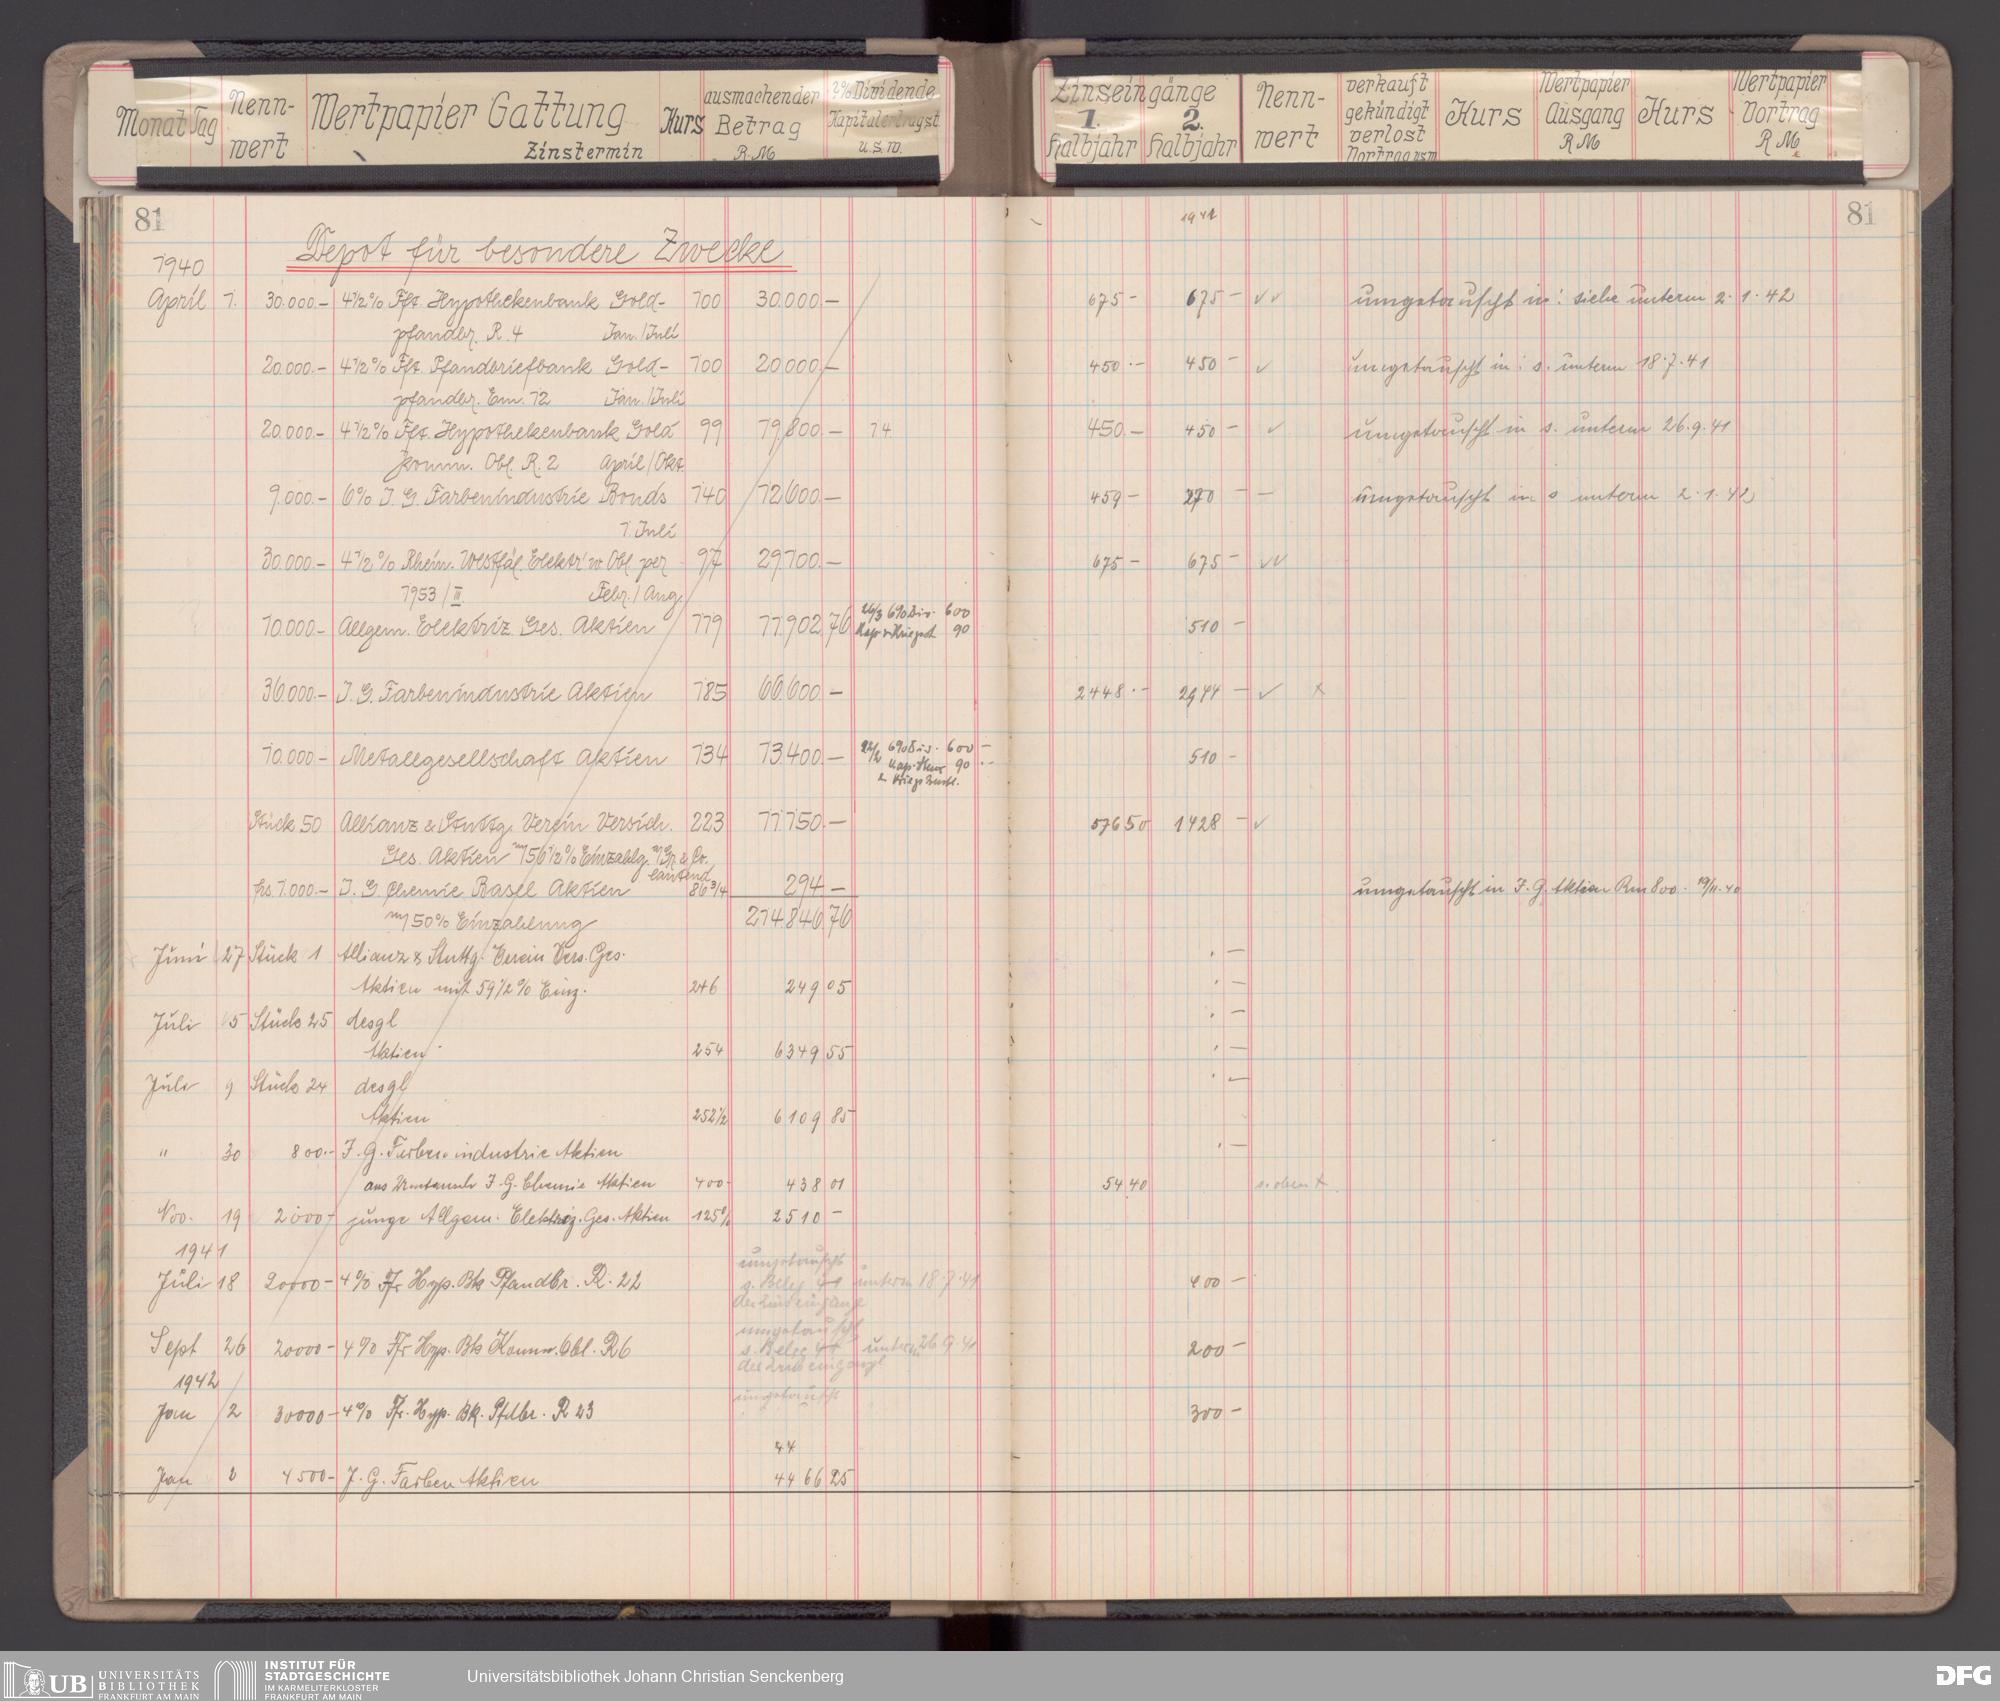 Monat Tag Nenn-wert Wertpapier Gattung Zinstermin Kurs ausmachender Betrag R.M 2% Dividende Kapitalertragst u.s.w.
Zinseingänge 1. Halbjahr 2. Halbjahr Nenn-wert verkauft gekündigt verlost Vortrag usw Kurs Wertpapier Ausgang RM Kurs Wertpapier Vortrag RM
81 81
1941
Depot für besondere Zwecke
1940
April 1. 30.000.– 4 1/2 % Fft. Hypothekenbank Gold- 100 30.000.– 675 – 675 – umgetauscht in: siehe unterm 2.1.42
pfandbr. R. 4 Jan./Juli
20.000.– 4 1/2 % Fft. Pfandbriefbank Gold- 100 20.000.– 450.– 450 – umgetauscht in: s. unterm 18.7.41
pfandbr. Em. 12 Jan./Juli
20.000.– 4 1/2 % Fft. Hypothekenbank Gold 99 19.800.– 14. 450.– 450 – umgetauscht in s. unterm 26.9.41
Komm. Obl. R. 2 April/Okt.
9.000.– 6% I. G. Farbenindustrie Bonds 140 12.600.– 459 – 270 – – umgetauscht in s unterm 2.1.42
1. Juli
30.000.– 4 1/2 % Rhein. Westfäl. Elektr'w. Obl. per 97 29.100.– 675 – 675 –
1953/III. Febr./Aug.
10.000.– Allgem. Elektriz. Ges. Aktien 119 11.902.76 26/3 6% Div. 600 510 –
90
36.000.– I. G. Farbenindustrie Aktien 185 66.600.– 2448.– –
10.000.– Metallgesellschaft Aktien 134 13.400.– 22/2 6% Div. 600 – 510 –
Kap. Steuer 90.–
Stück 50 Allianz & Stuttg. Verein Versich. 223 11.150.– 576 50 1428 –
Ges. Aktien m/ 56 1/2 % Einzahlg. a/ Gr. & Co. lautend
frs. 1.000.– I. G. Chemie Basel Aktien 86 3/4 294 – umgetauscht in I. G. Aktien Rm 800.– 19/11.40
m/ 50% Einzahlung 214.846.76
Juni 27 Stück 1 Allianz & Stuttg. Verein Vers. Ges.
Aktien mit 59 1/2 % Einz. 246 249 05
Juli 5 Stück 25 desgl
Aktien 254 6349 55
Juli 9 Stück 24 desgl
Aktien 252 1/2 6109 85
" 30 800.– I. G. Farbenindustrie Aktien
aus Umtausch I. G. Chemie Aktien 438 01 54 40 s. oben +
Nov. 19 2000 – junge Allgem. Elektriz. Ges. Aktien 125% 2510 –
1941
umgetauscht
Juli 18 20000 – 4% Ffr Hyp. Bk Pfandbr. R. 22 s. Beleg 41 unterm 18.7.41 400 –
der Zinseingänge
umgetauscht
Sept 26 20000 – 4% Ffr Hyp. Bk Komm. Obl. R 6 s. Beleg 44 unterm 26.9.41 200 –
der Zinseingänge
1942
umgetauscht
Jan 2 30000 – 4% Ffr. Hyp. Bk. Pfdbr. R 23 300 –
44
Jan 2 4500 – I. G. Farben Aktien 4466 25
UB UNIVERSITÄTS BIBLIOTHEK FRANKFURT AM MAIN
INSTITUT FÜR STADTGESCHICHTE IM KARMELITERKLOSTER FRANKFURT AM MAIN
Universitätsbibliothek Johann Christian Senckenberg
DFG